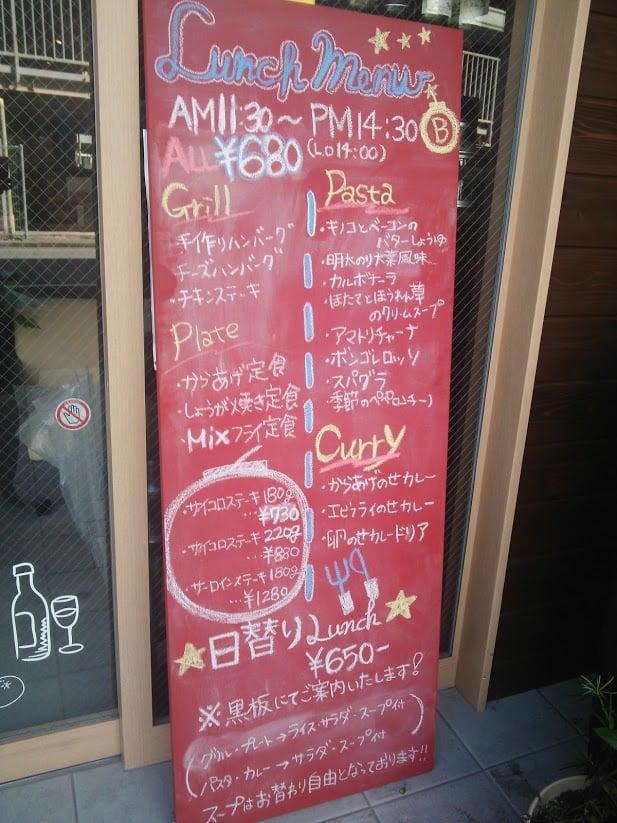 Lunch Menu
AM11:30～PM14:30
B
ALL ¥680 (L.O 14:00)
Grill
手作りハンバーグ
チーズハンバーグ
・チキンステーキ
Plate
・からあげ定食
・しょうが焼き定食
・Mixフライ定食
・サイコロステーキ180g
…¥730
・サイコロステーキ220g
…¥880
・サーロインステーキ180g
…¥1280
Pasta
・キノコとベーコンの
バターしょうゆ
・明太のり大葉風味
・カルボナーラ
・ほたてとほうれん草
のクリームスープ
・アマトリチャーナ
・ボンゴレロッソ
・スパグラ
季節のペペロンチーノ
Curry
・からあげのせカレー
・エビフライのせカレー
・卵のせカレードリア
日替りLunch
¥650-
※黒板にてご案内いたします!
(グリル・プレート→ライス・サラダ・スープ付
パスタ・カレー→サラダ・スープ付)
スープはお替わり自由となっております!!